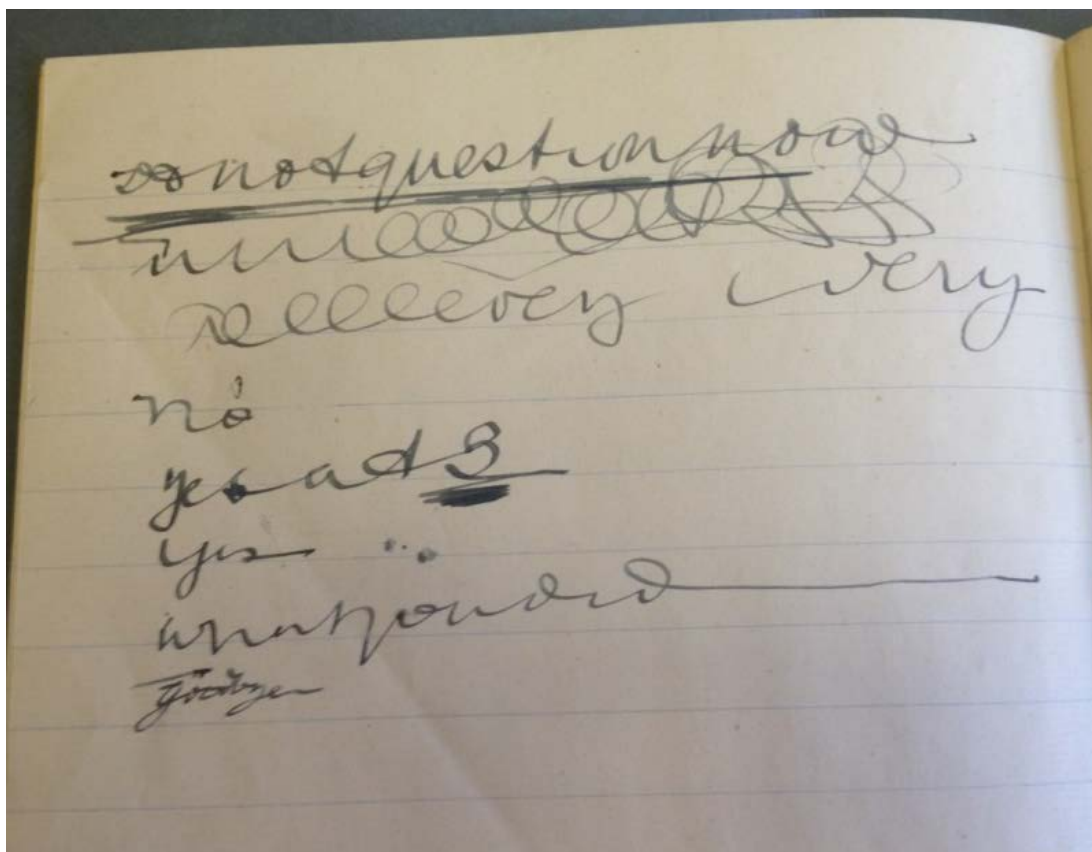 do not question now
very very
no
yes at 3
yes
what you did
Goodbye